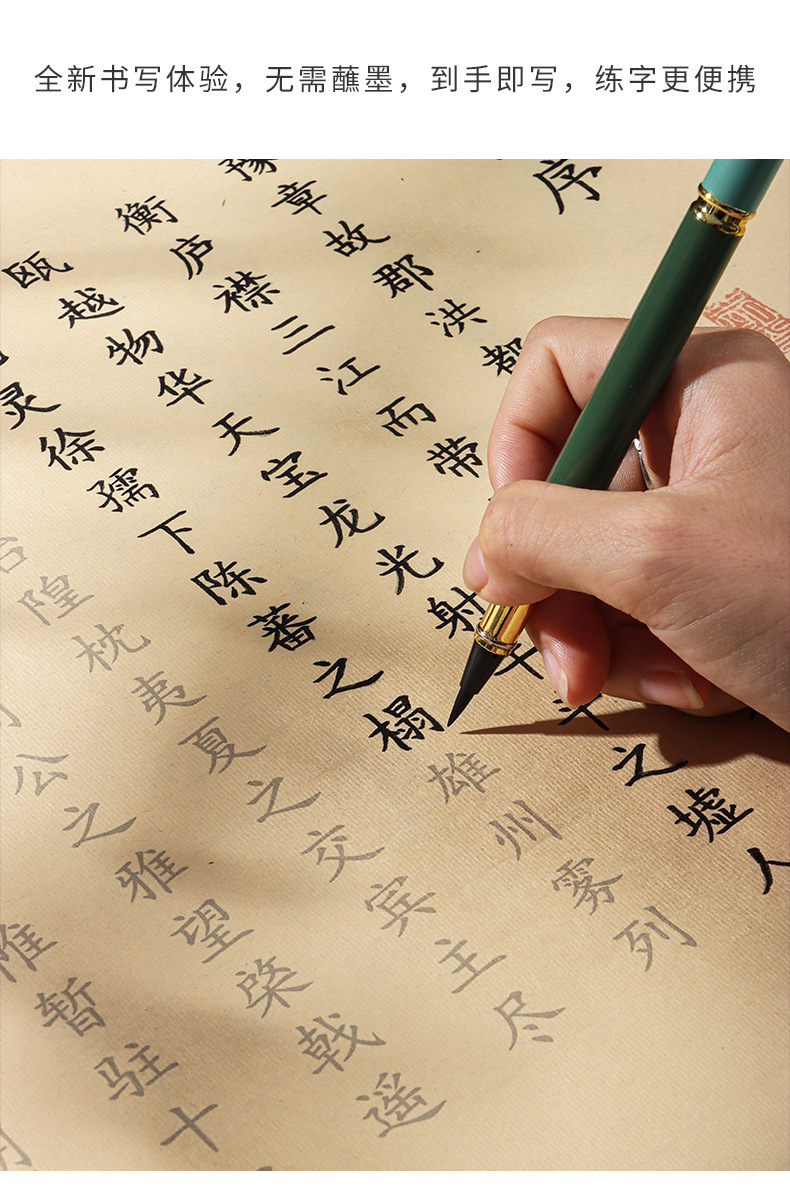 全新书写体验，无需蘸墨，到手即写，练字更便携
序
豫章故郡洪都
衡庐襟三江而带
瓯越物华天宝龙光射牛斗之墟人
灵徐孺下陈蕃之榻雄州雾列
台隍枕夷夏之交宾主尽
公之雅望棨戟遥
帷暂驻十